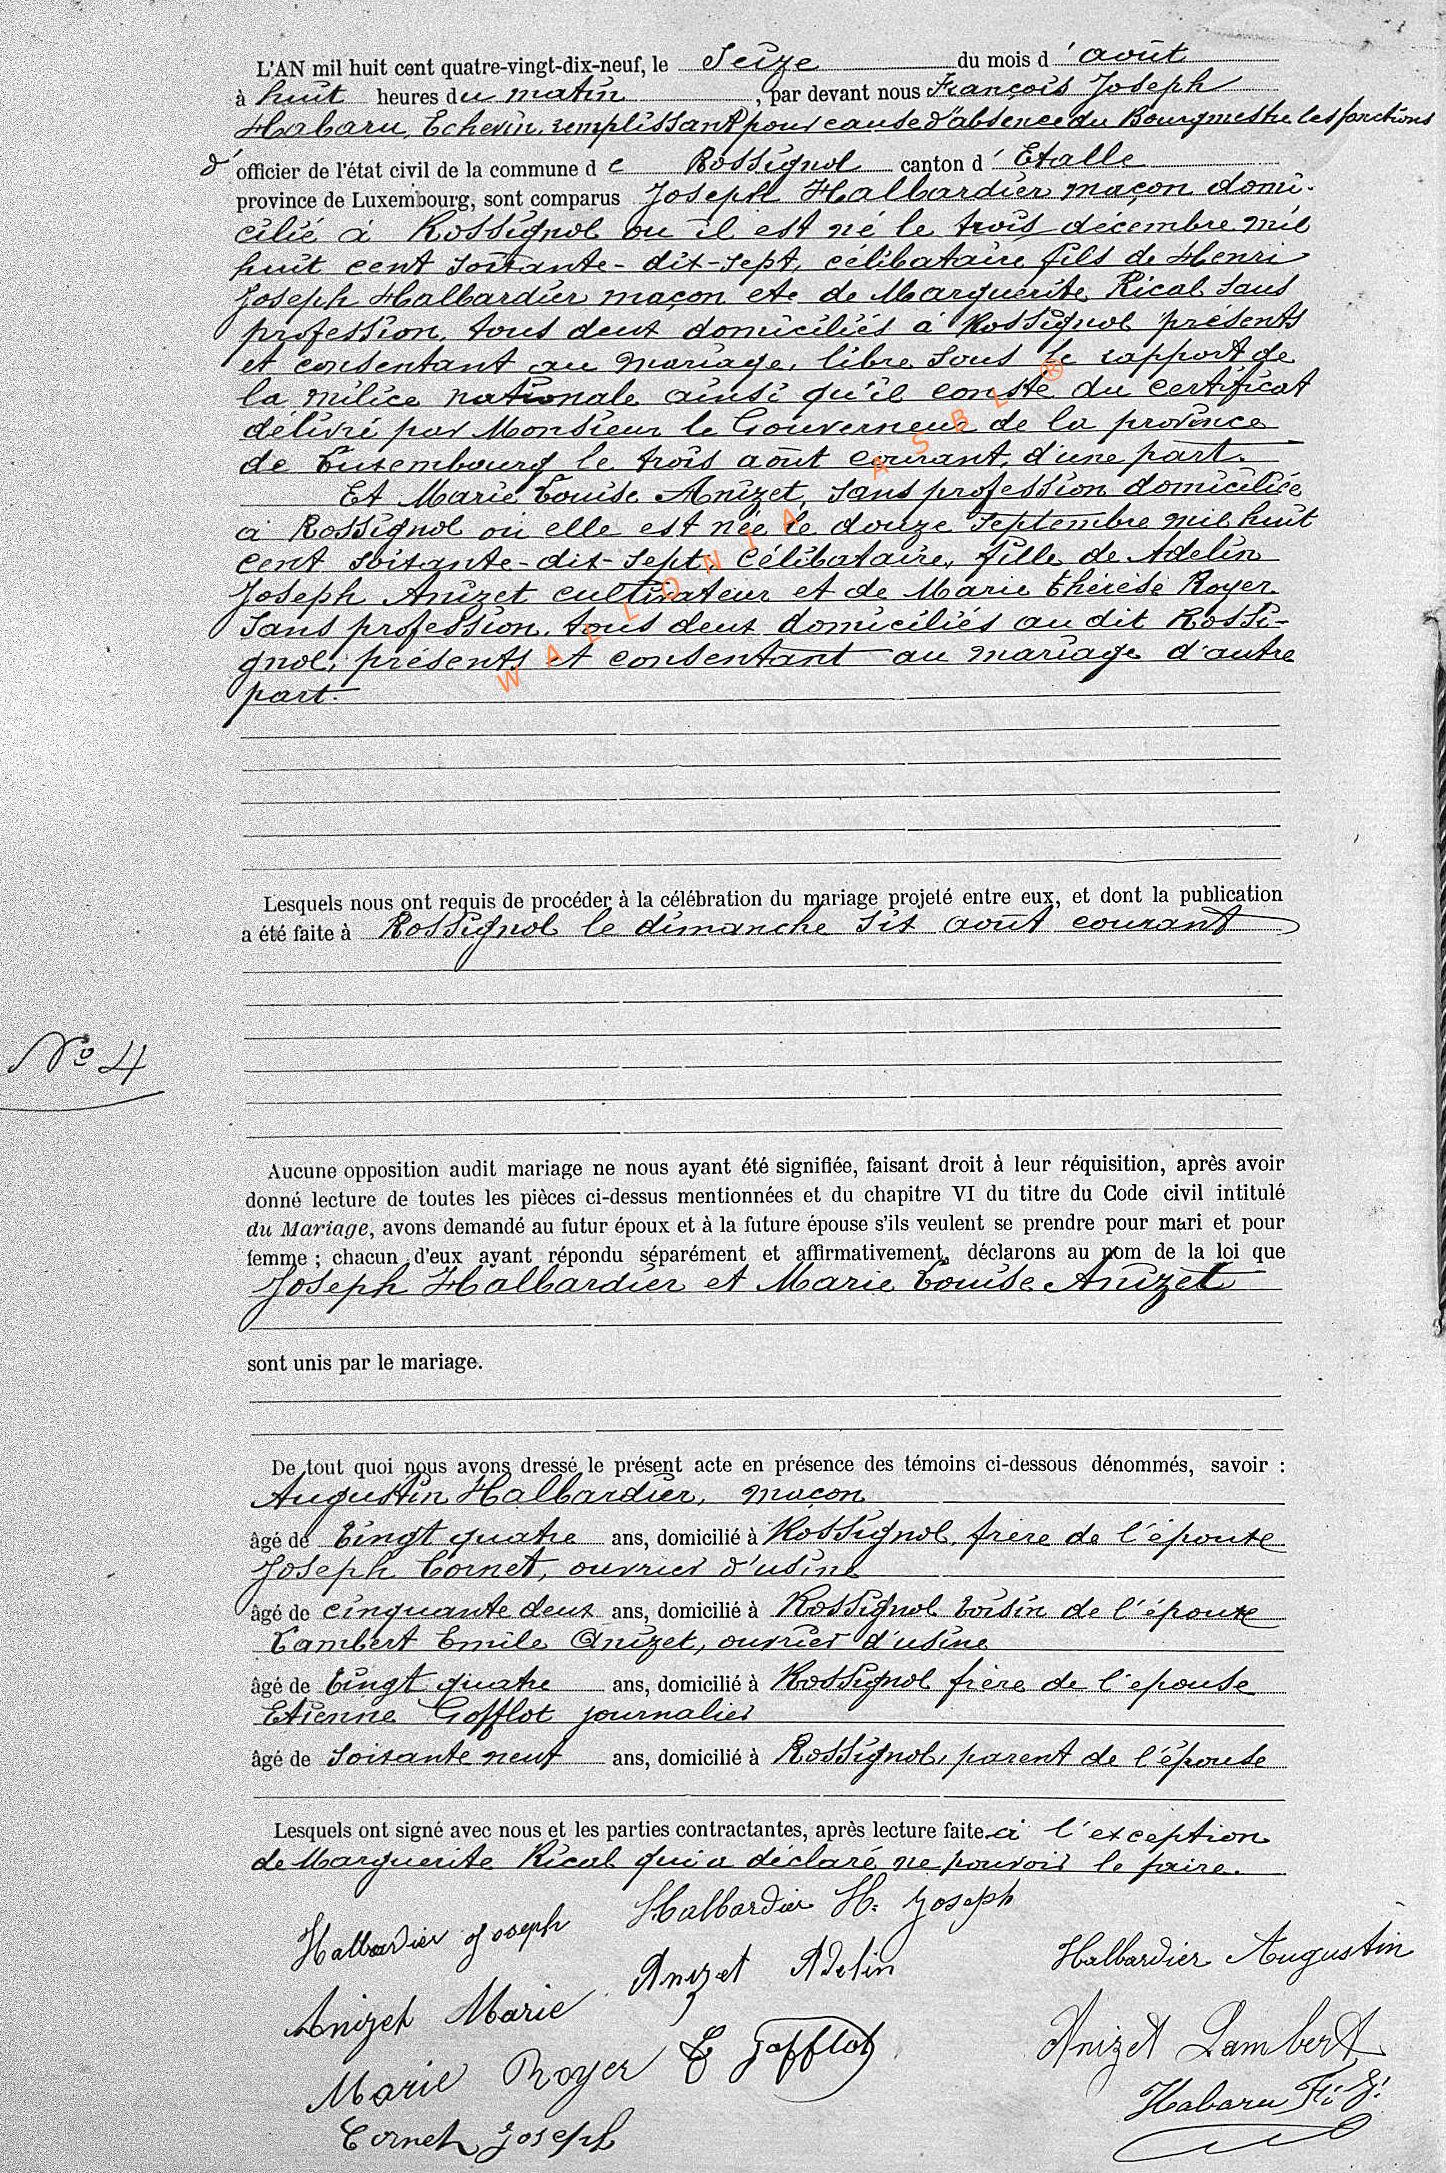 L'AN mil huit cent quatre-vingt-dix-neuf, le Seize du mois d'août
à huit heures du matin, par devant nous François Joseph
Habaru, Echevin, remplissant pour cause d'absence du Bourgmestre les fonctions
d'officier de l'état civil de la commune de Rossignol canton d'Etalle
province de Luxembourg, sont comparus Joseph Halbardier maçon domi-
cilié à Rossignol ou il est né le trois décembre mil
huit cent soixante-dix-sept, célibataire fils de Henri
Joseph Halbardier maçon et de Marguerite Rical sans
profession, tous deux domiciliés à Rossignol présents
et consentant au mariage, libre sous le rapport de
la milice nationale ainsi qu'il conste du certificat
délivré par Monsieur le Gouverneur de la province
de Luxembourg le trois août courant, d'une part.
Et Marie Louise Anizet, sans profession domiciliée
à Rossignol où elle est née le douze septembre mil huit
cent soixante-dix-sept célibataire, fille de Adelin
Joseph Anizet cultivateur et de Marie Thérèse Royer
sans profession, tous deux domiciliés au dit Rossi-
gnol, présents et consentant au mariage d'autre
part.
WALLONIA ASBL ®
Lesquels nous ont requis de procéder à la célébration du mariage projeté entre eux, et dont la publication
a été faite à Rossignol le dimanche six août courant
N° 4
Aucune opposition audit mariage ne nous ayant été signifiée, faisant droit à leur réquisition, après avoir
donné lecture de toutes les pièces ci-dessus mentionnées et du chapitre VI du titre du Code civil intitulé
du Mariage, avons demandé au futur époux et à la future épouse s'ils veulent se prendre pour mari et pour
femme ; chacun d'eux ayant répondu séparément et affirmativement, déclarons au nom de la loi que
Joseph Halbardier et Marie Louise Anizet
sont unis par le mariage.
De tout quoi nous avons dressé le présent acte en présence des témoins ci-dessous dénommés, savoir :
Augustin Halbardier, maçon
âgé de vingt quatre ans, domicilié à Rossignol, frère de l'époux
Joseph Cornet, ouvrier d'usine
âgé de cinquante deux ans, domicilié à Rossignol voisin de l'époux
Lambert Emile Anizet, ouvrier d'usine
âgé de vingt quatre ans, domicilié à Rossignol frère de l'épouse
Etienne Gofflot journalier
âgé de soixante neuf ans, domicilié à Rossignol, parent de l'épouse
Lesquels ont signé avec nous et les parties contractantes, après lecture faite à l'exception
de Marguerite Rical qui a déclaré ne pouvoir le faire.
Halbardier Joseph Halbardier H. Joseph
Halbardier Augustin
Anizet Marie Anizet Adelin
Anizet Lambert
Marie Royer E Gofflot
Habaru F. J.
Cornet Joseph